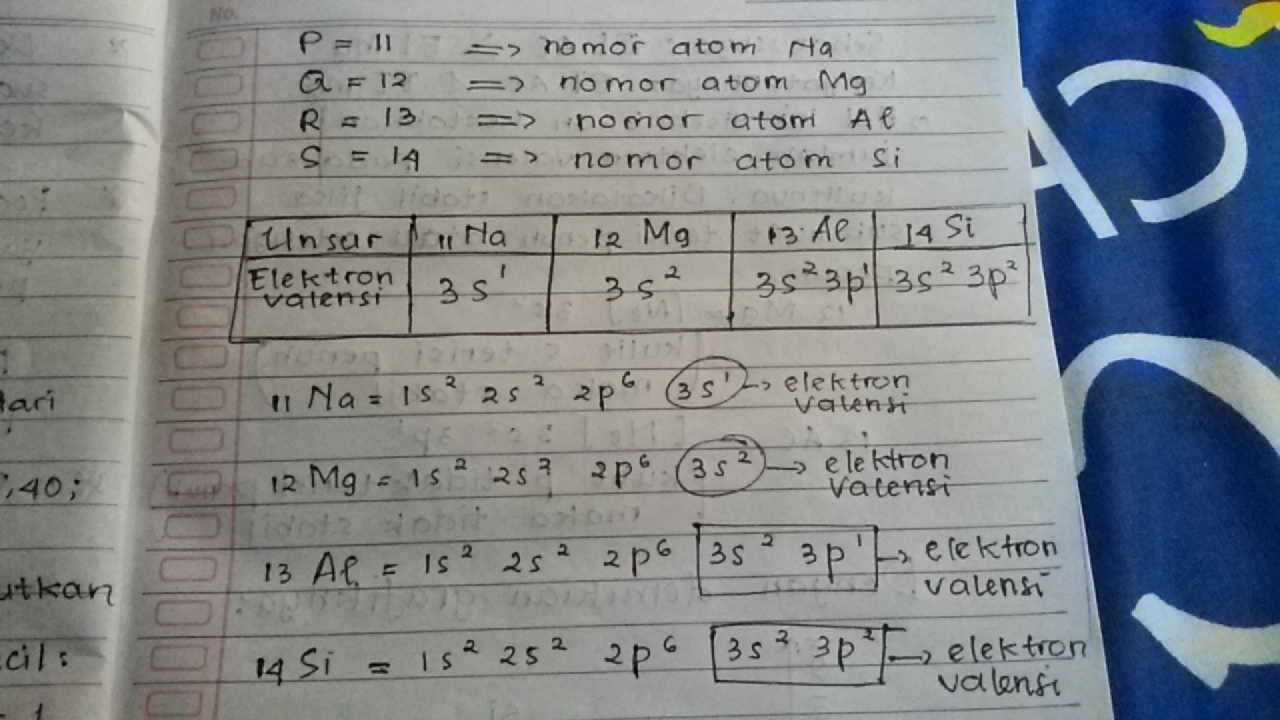 No.
P = 11 => nomor atom Na
Q = 12 => nomor atom Mg
R = 13 => nomor atom Al
S = 14 => nomor atom Si
Unsur 11 Na 12 Mg 13 Al 14 Si
Elektron valensi 3s¹ 3s² 3s² 3p¹ 3s² 3p²
11 Na = 1s² 2s² 2p⁶ 3s¹ → elektron
valensi
12 Mg = 1s² 2s² 2p⁶ 3s² → elektron
valensi
13 Al = 1s² 2s² 2p⁶ 3s² 3p¹ → elektron
valensi
14 Si = 1s² 2s² 2p⁶ 3s² 3p² → elektron
valensi
lari
,40;
utkan
cil:
CA